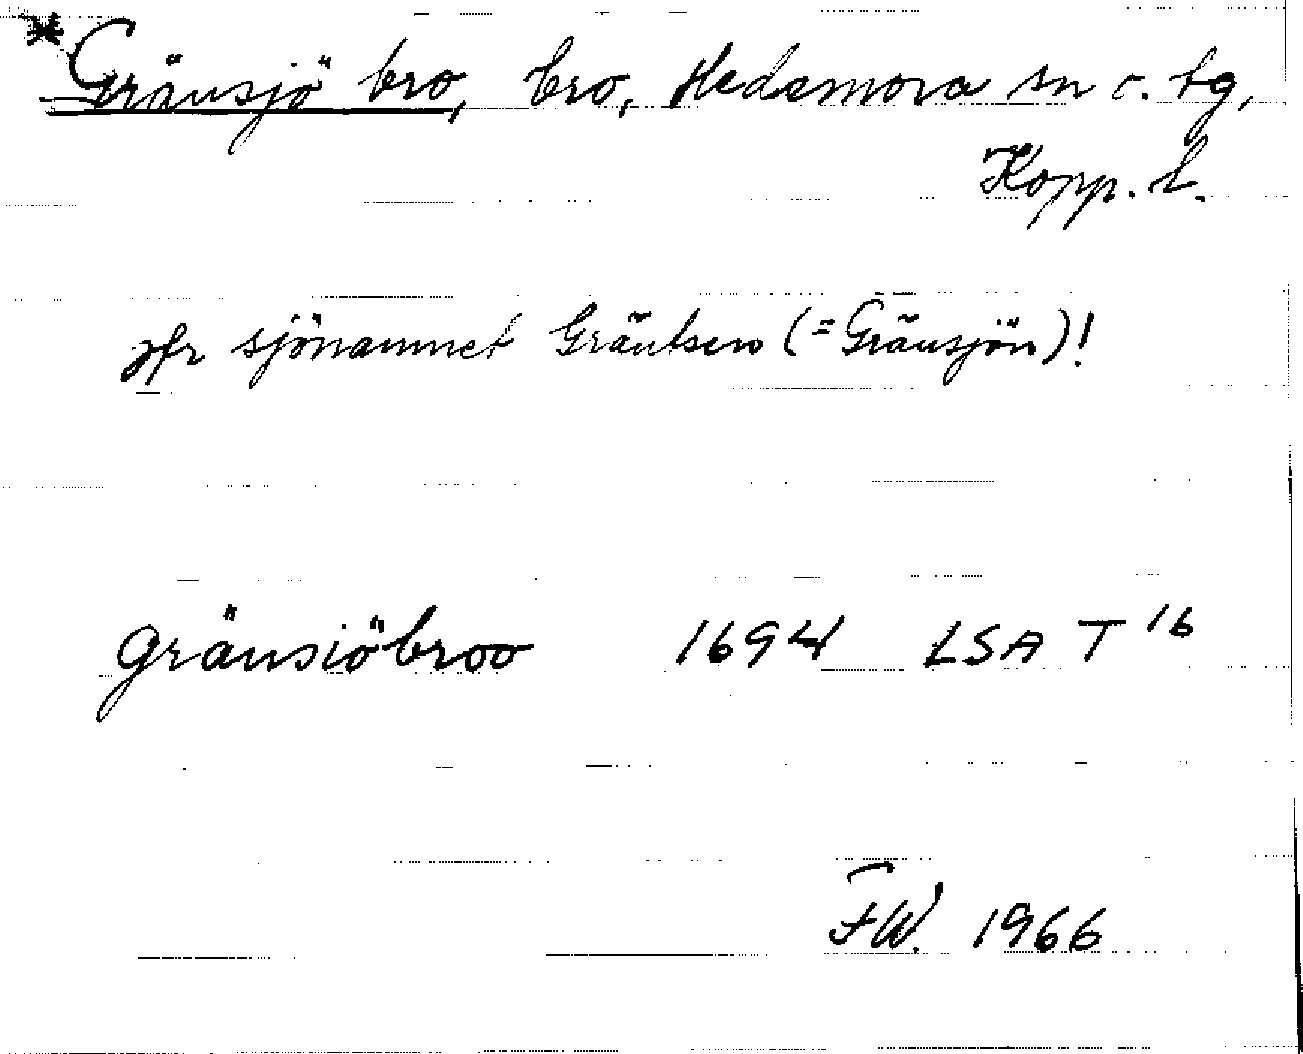 *Gränsjö bro, bro, Hedemora sn o. tg,
Kopp. l.
jfr sjönamnet Gräntsen (=Gränsjön)!
gränsiöbroo 1694 LSA T 16
FW. 1966